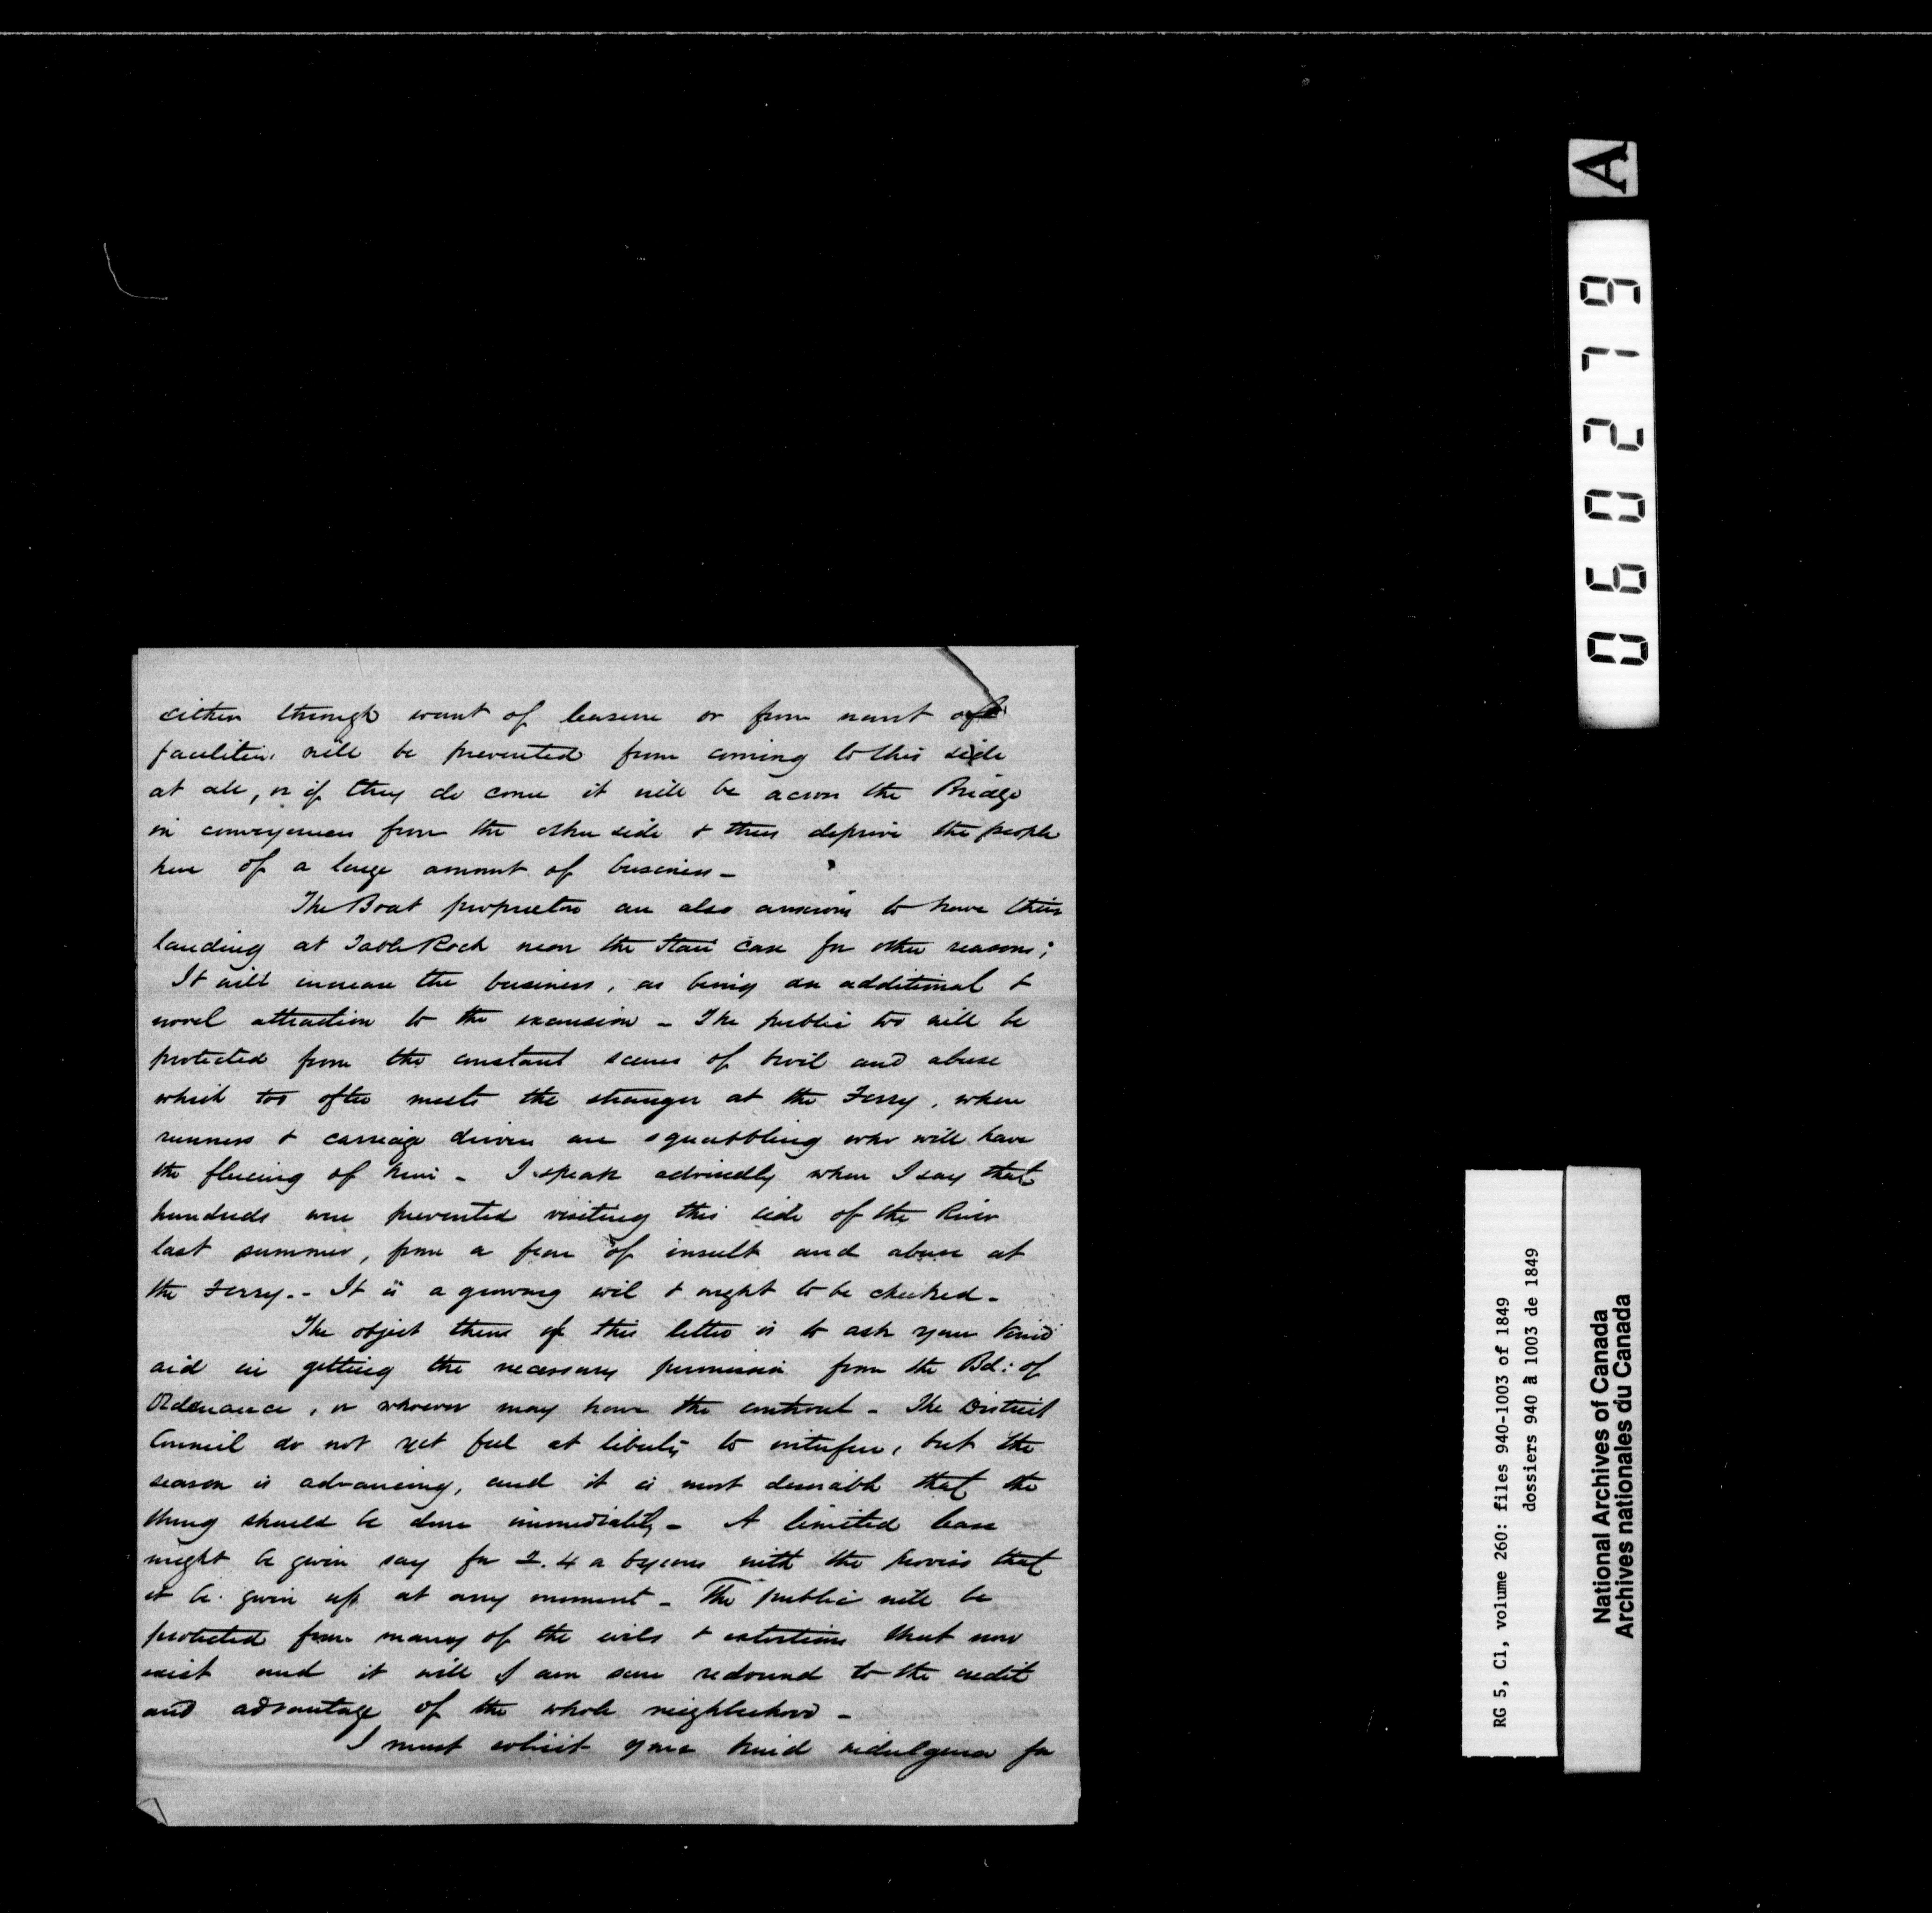 either through want of leasure or from want of
facilities will be prevented from coming to this side
at all, or if they do come it will be across the Bridge
in conveyences from the other side & thus deprive the people
here of a large amount of business -
The Boat proprietors are also anxious to have their
landing at Table Rock near the Stair Case for other reasons;
It will increase the business, as being an additional &
novel attraction to the excursion - The public too will be
protected from the constant scenes of broil and abuse
which too often meets the stranger at the Ferry, where
runners & carriage drivers are squabbling who will have
the fleecing of him - I speak advisedly when I say that
hundreds were prevented visiting this side of the River
last summer, from a fear of insult and abuse at
the Ferry. - It is a growing evil & ought to be checked -
The object then of this letter is to ask your kind
aid in getting the necessary permission from the Bd: of
Ordenance, or whoever may have the controul - The District
Council do not yet feel at liberty to interfere, but the
season is advancing, and it is most desirable that the
thing should be done immediately - A limited lease
might be given say for 2. 4 or 6 years with the proviso that
it be given up at any moment - The public will be
protected from many of the evils & extortions that now
exist and it will I am sure redound to the credit
and advantage of the whole neighborhood -
I must solicit your kind indulgence for
A
060279
RG 5, C1, volume 260: files 940-1003 of 1849
dossiers 940 à 1003 de 1849
National Archives of Canada
Archives nationales du Canada